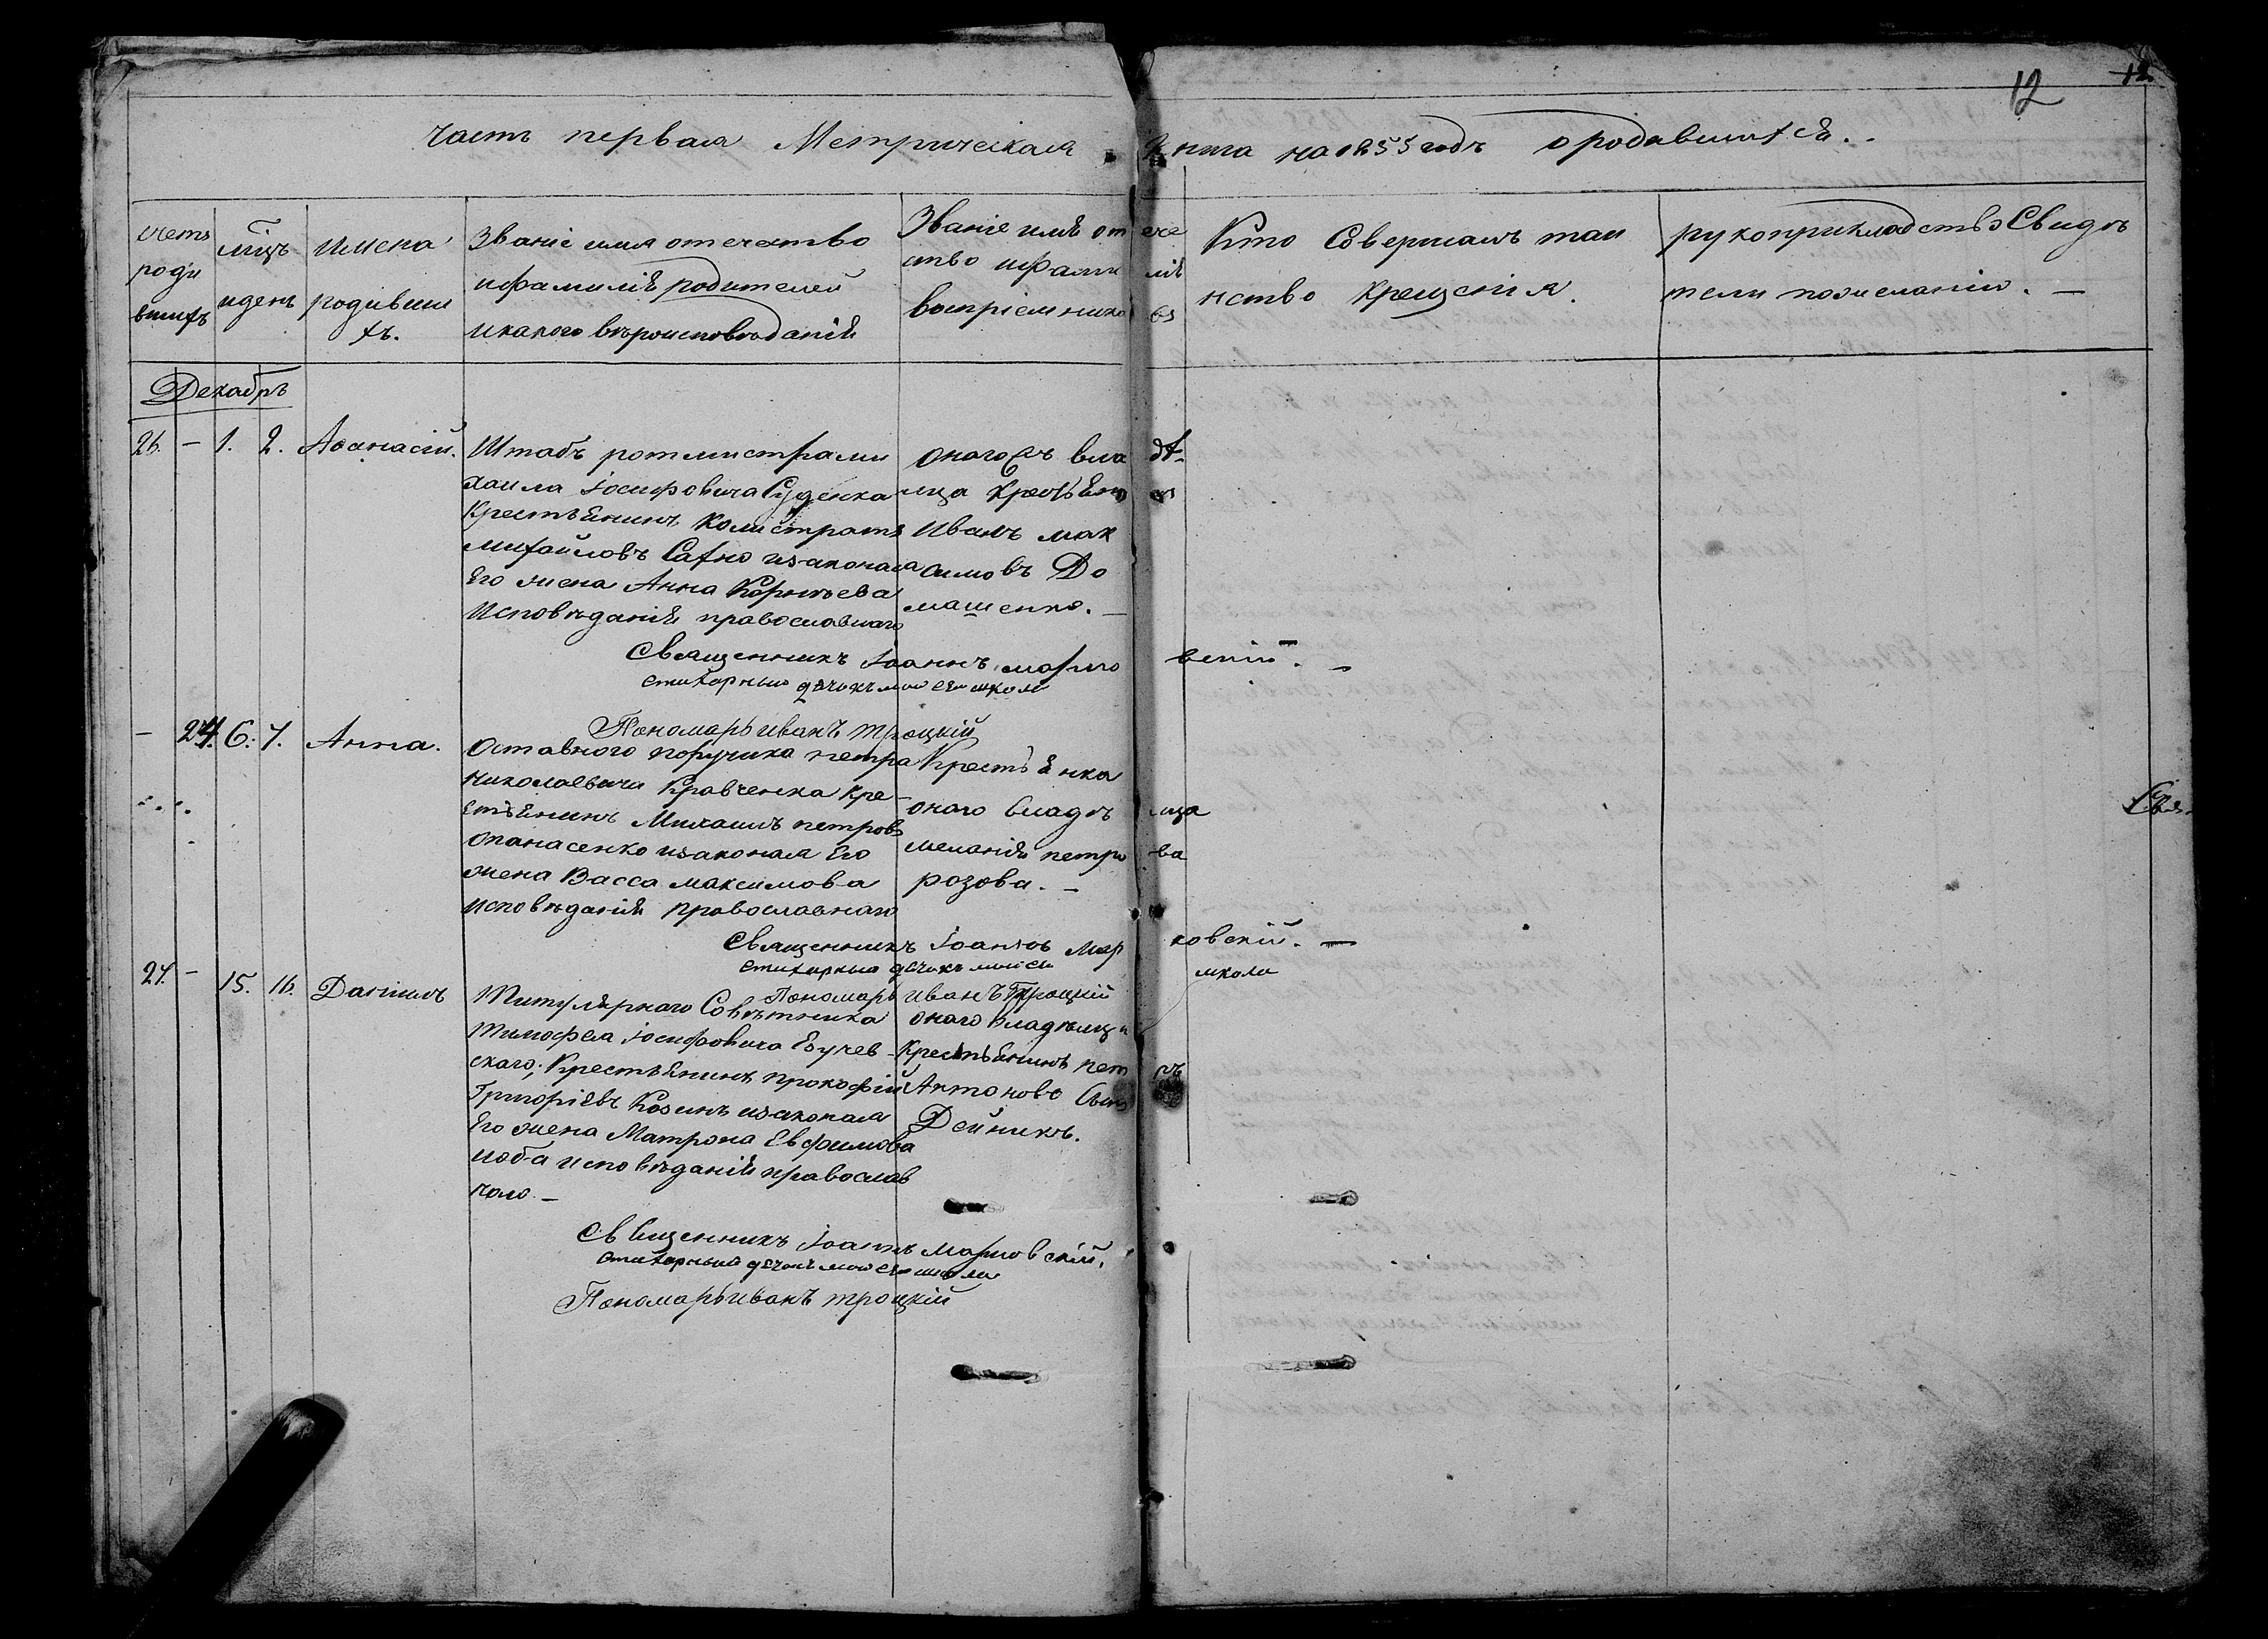 12
12
часть первая Метрическая книга на 1855 годъ о родившихся.
счетъ родившихъ
мцъ и день
имена родившихъ.
Званіе имя отечество
и фамилія родителей
и какого вѣроисповѣданія
Званіе имя отече
ство и фамилія
воспріемниковъ
Кто Совершалъ таи
нство крещенія.
рукоприкладство Свидѣ
тели по желанію. —
Декабрь
26. — 1. 2. Аѳанасій.
Штабъ ротмистра ми
хаила іосифовича Суденка
Крестьянинъ Калистратъ
михайловъ Сахно и законая
Его жена Анна Корнѣева
Исповѣданія православнаго
оного жъ владѣ
лца
Иванъ мак
симовъ До
машенко. —
Священникъ Іоаннъ
Стихарный дячокъ моисей школа
Пономарь иванъ троцкій
— 27. 6. 7. Анна.
Отставного поручика петра
николаевича Кравченка кре-
стьянинъ Михаилъ петровъ
опанасенко и законая Его
жена Васса максимова
исповѣданія православнаго
Крестьянка
оного владѣлца
меланія петрова
розова. —
Свя.
Священникъ Іоаннъ Марковскій. —
Стихарный дячокъ моисей школа
Пономарь иванъ Троцкій
27. — 15. 16. Даніилъ
Титулярного Совѣтника
Тимофея іосифовича
скаго; Крестьянинъ прокофій
Григоріевъ Козинъ и законая
Его жена Матрона Евфимова
и оба исповѣданія православ
ного. —
оного владѣлца
Крестьянинъ петръ
Антоновъ Сынъ
Дейникъ.
Священникъ Іоаннъ Марковскій.
Стихарный дячокъ моисей школа
Пономарь иванъ троцкій